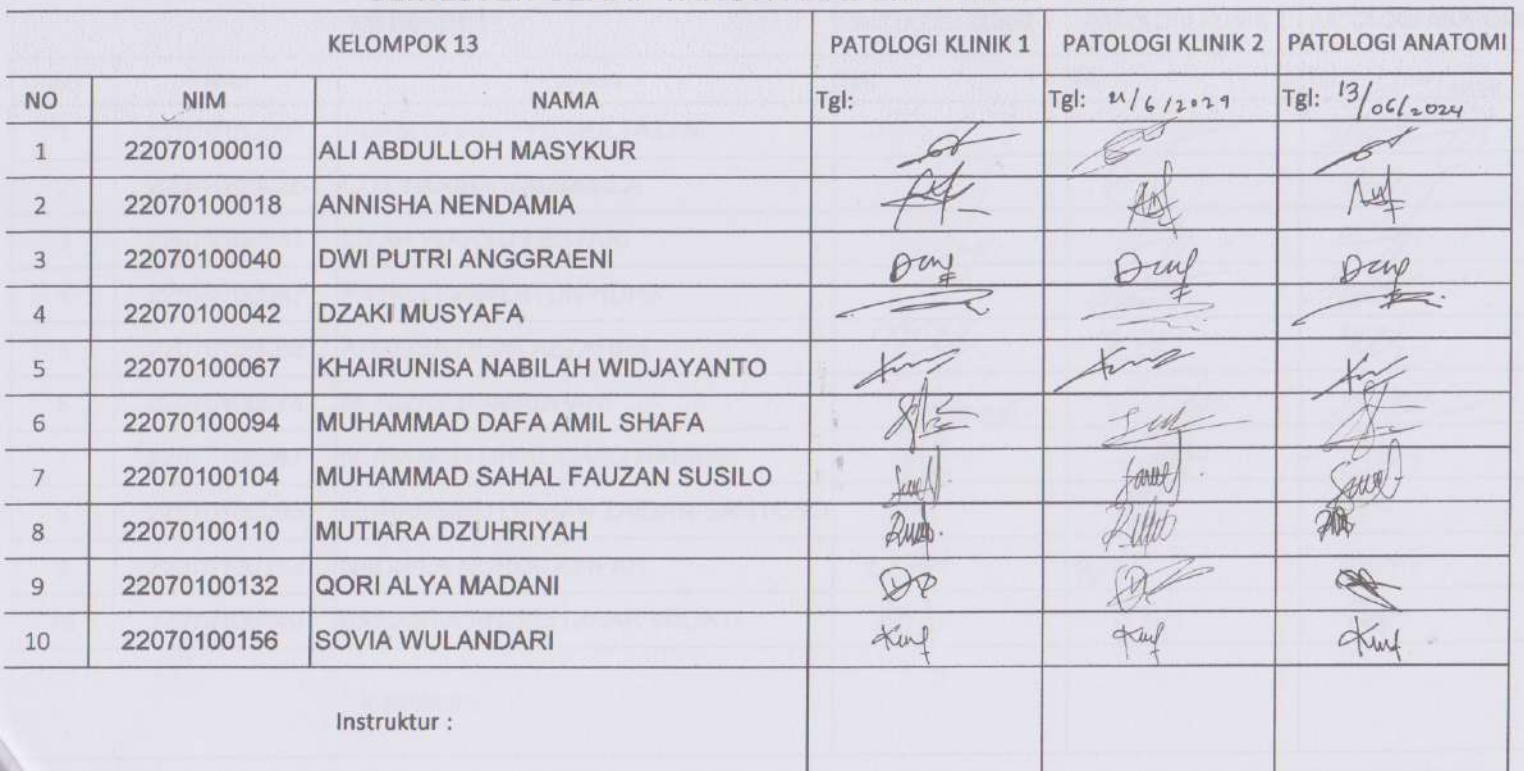 KELOMPOK 13 PATOLOGI KLINIK 1 PATOLOGI KLINIK 2 PATOLOGI ANATOMI
NO NIM NAMA Tgl: Tgl: 21/6/2024 Tgl: 13/06/2024
1 22070100010 ALI ABDULLOH MASYKUR
2 22070100018 ANNISHA NENDAMIA
3 22070100040 DWI PUTRI ANGGRAENI
4 22070100042 DZAKI MUSYAFA
5 22070100067 KHAIRUNISA NABILAH WIDJAYANTO
6 22070100094 MUHAMMAD DAFA AMIL SHAFA
7 22070100104 MUHAMMAD SAHAL FAUZAN SUSILO
8 22070100110 MUTIARA DZUHRIYAH
9 22070100132 QORI ALYA MADANI
10 22070100156 SOVIA WULANDARI
Instruktur :